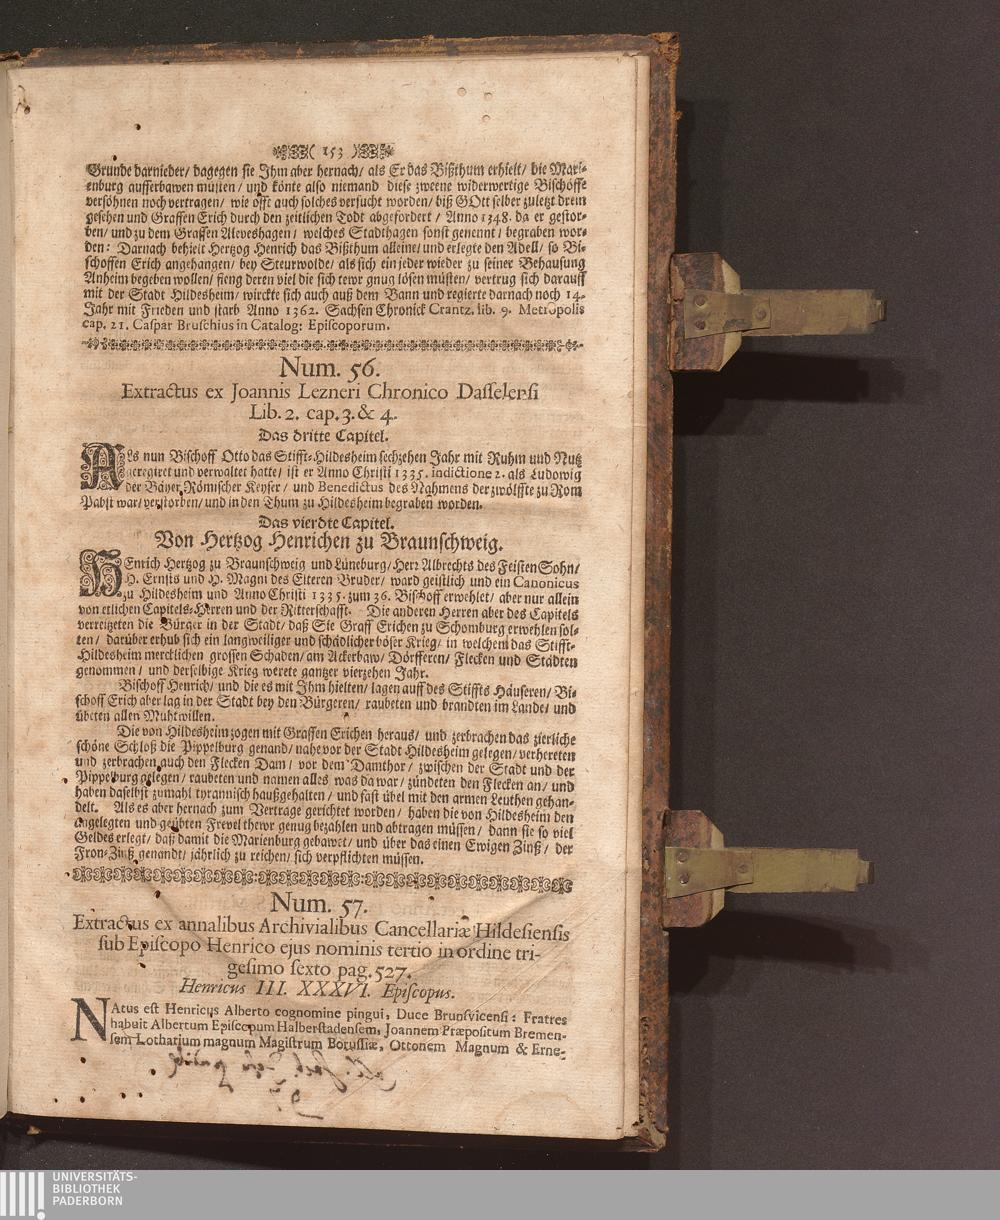 ( 153 )
Grunde darnieder/ dagegen sie Jhm aber hernach/ als Er das Bißthum erhielt/ die Mari-
enburg aufferbawen müsten/ und könte also niemand diese zweene widerwertige Bischöffe
versöhnen noch vertragen/ wie offt auch solches versucht worden/ biß GOtt selber zuletzt drein
gesehen und Graffen Erich durch den zeitlichen Todt abgefordert/ Anno 1348. da er gestor-
ben/ und zu dem Graffen Aleveshagen/ welches Stadthagen sonst genennt/ begraben wor-
den: Darnach behielt Hertzog Henrich das Bißthum alleine/ und erlegte den Adell/ so Bi-
schoffen Erich angehangen/ bey Steurwolde/ als sich ein jeder wieder zu seiner Behausung
Anheim begeben wollen/ fieng deren viel die sich tewr gnug lösen müsten/ vertrug sich darauff
mit der Stadt Hildesheim/ wirckte sich auch auß dem Bann und regierte darnach noch 14.
Jahr mit Frieden und starb Anno 1362. Sachsen Chronick Crantz. lib. 9. Metropolis
cap. 21. Caspar Bruschius in Catalog: Episcoporum.
Num. 56.
Extractus ex Joannis Lezneri Chronico Dasselensi
Lib. 2. cap. 3. & 4.
Das dritte Capitel.
ALs nun Bischoff Otto das Stifft-Hildesheim sechzehen Jahr mit Ruhm und Nutz
geregiret und verwaltet hatte/ ist er Anno Christi 1335. indictione 2. als Ludowig
der Bäyer Römischer Keyser/ und Benedictus des Nahmens der zwölffte zu Rom
Pabst war/ verstorben/ und in den Thum zu Hildesheim begraben worden.
Das vierdte Capitel.
Von Hertzog Henrichen zu Braunschweig.
HEnrich Hertzog zu Braunschweig und Lüneburg/ Herr Albrechts des Feisten Sohn/
H. Ernsts und H. Magni des Elteren Bruder/ ward geistlich und ein Canonicus
zu Hildesheim und Anno Christi 1335. zum 36. Bischoff erwehlet/ aber nur allein
von etlichen Capitels-Herren und der Ritterschafft. Die anderen Herren aber des Capitels
verreitzeten die Bürger in der Stadt/ daß Sie Graff Erichen zu Schomburg erwehlen sol-
ten/ darüber erhub sich ein langweiliger und schädlicher böser Krieg/ in welchem das Stifft-
Hildesheim mercklichen grossen Schaden/ am Ackerbaw/ Dörfferen/ Flecken und Städten
genommen/ und derselbige Krieg werete gantzer vierzehen Jahr.
Bischoff Henrich/ und die es mit Jhm hielten/ lagen auff des Stiffts Häuseren/ Bi-
schoff Erich aber lag in der Stadt bey den Bürgeren/ raubeten und brandten im Lande/ und
übeten allen Muhtwillen.
Die von Hildesheim zogen mit Graffen Erichen heraus/ und zerbrachen das zierliche
schöne Schloß die Pippelburg genand/ nahe vor der Stadt Hildesheim gelegen/ verhereten
und zerbrachen auch den Flecken Dam/ vor dem Damthor/ zwischen der Stadt und der
Pippelburg gelegen/ raubeten und namen alles was da war/ zündeten den Flecken an/ und
haben daselbst zumahl tyrannisch haußgehalten/ und fast übel mit den armen Leuthen gehan-
delt. Als es aber hernach zum Vertrage gerichtet worden/ haben die von Hildesheim den
angelegten und geübten Frevel thewr genug bezahlen und abtragen müssen/ dann sie so viel
Geldes erlegt/ daß damit die Marienburg gebawet/ und über das einen Ewigen Zinß/ der
Fron-Zinß genandt/ jährlich zu reichen/ sich verpflichten müssen.
Num. 57.
Extractus ex annalibus Archivialibus Cancellariæ Hildesiensis
sub Episcopo Henrico ejus nominis tertio in ordine tri-
gesimo sexto pag. 527.
Henricus III. XXXVI. Episcopus.
NAtus est Henricus Alberto cognomine pingui, Duce Brunsvicensi: Fratres
habuit Albertum Episcopum Halberstadensem, Joannem Præpositum Bremen-
sem Lotharium magnum Magistrum Borussiæ, Ottonem Magnum & Erne-
UNIVERSITÄTS-
BIBLIOTHEK
PADERBORN